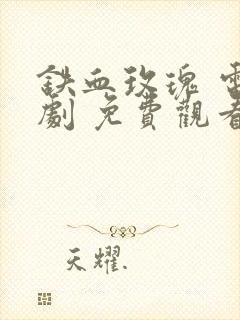 鉄血玫瑰 電
劇 免費觀看
天耀.